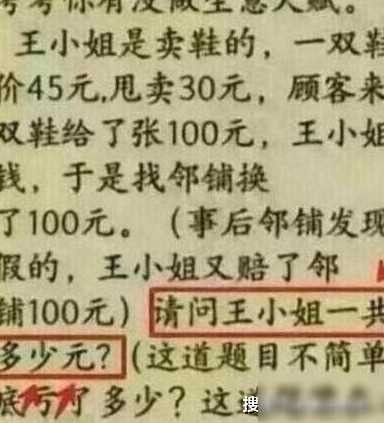 考考你有没做生意天赋。
王小姐是卖鞋的，一双鞋
价45元,甩卖30元，顾客来
双鞋给了张100元，王小姐
钱，于是找邻铺换
了100元。（事后邻铺发现
假的，王小姐又赔了邻
铺100元）请问王小姐一共
多少元？（这道题目不简单
底亏了多少？这道
搜